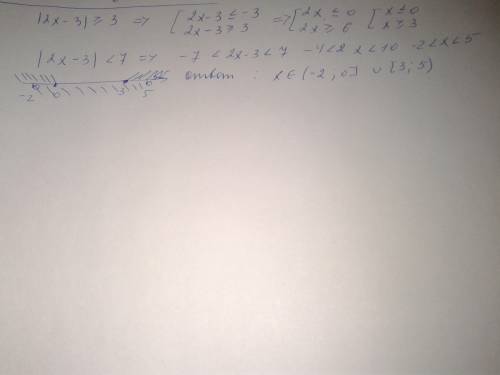 |2x-3| ≥ 3 => [ 2x-3 ≤ -3 2x-3 ≥ 3 => [ 2x ≤ 0 2x ≥ 6 [ x ≤ 0 x ≥ 3
|2x-3| < 7 => -7 < 2x-3 < 7 -4 < 2x < 10 -2 < x < 5
-2 0 3 5 ответ : x ∈ (-2, 0] ∪ [3; 5)